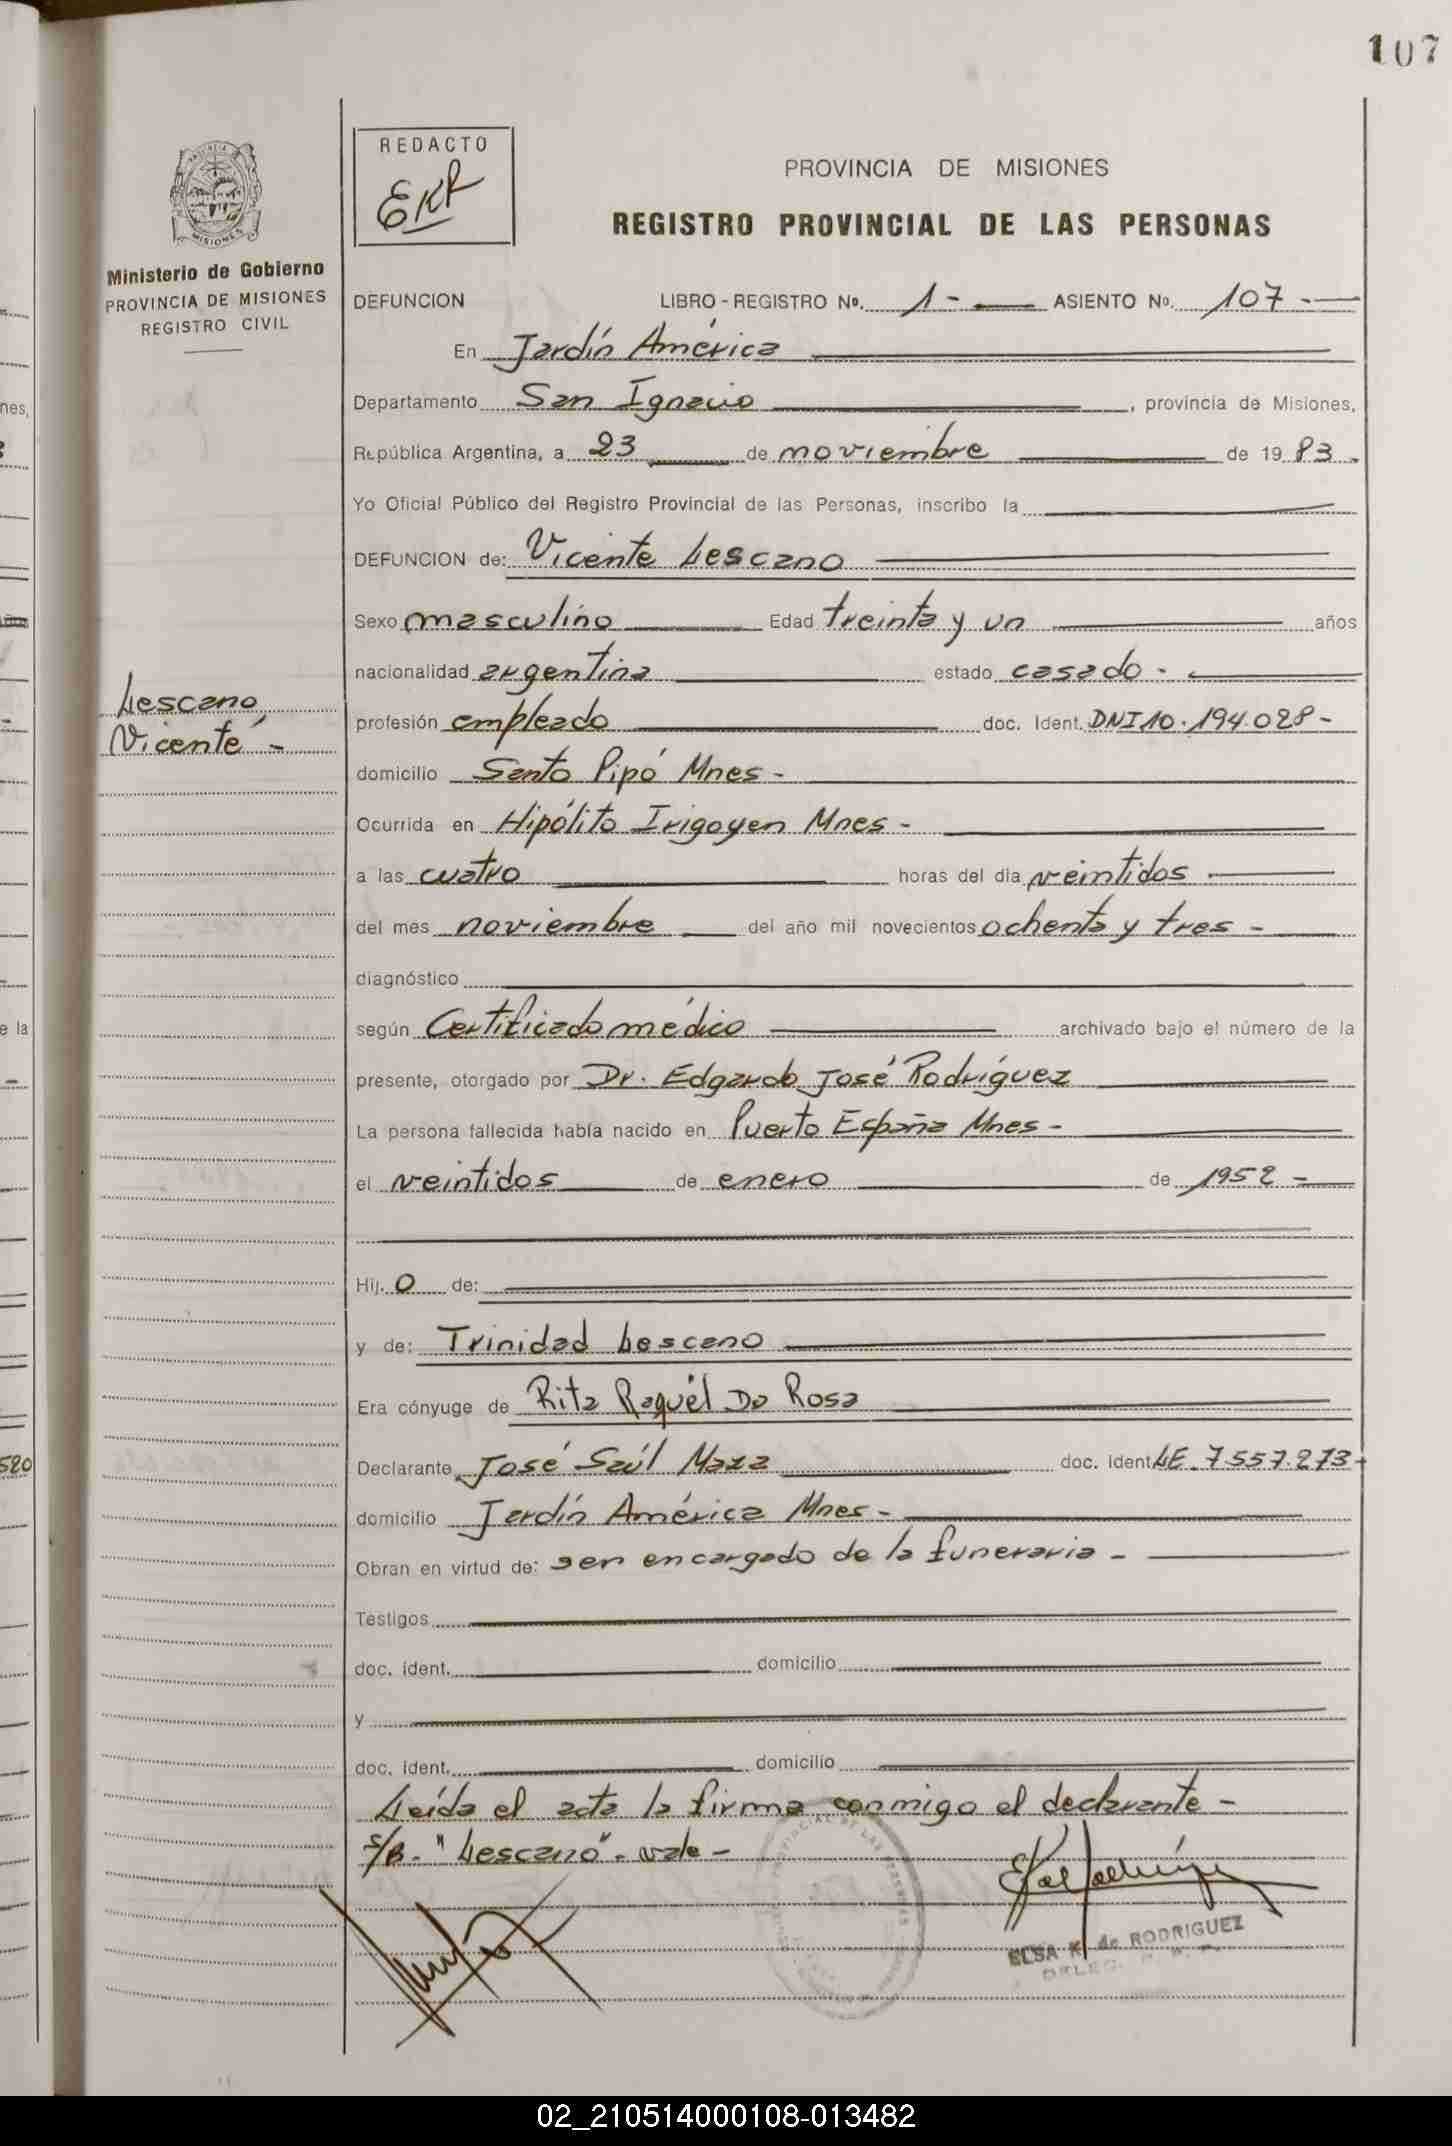 107
REDACTO
EKR
PROVINCIA DE MISIONES
REGISTRO PROVINCIAL DE LAS PERSONAS
MISIONES
Ministerio de Gobierno
PROVINCIA DE MISIONES
REGISTRO CIVIL
DEFUNCION LIBRO - REGISTRO Nº. 1 - ASIENTO Nº. 107 -
En Jardín América
Departamento San Ignacio, provincia de Misiones,
República Argentina, a 23 de noviembre de 19 83.
Yo Oficial Público del Registro Provincial de las Personas, inscribo la
DEFUNCION de: Vicente Lescano
Sexo masculino Edad treinta y un años
nacionalidad argentina estado casado -
Lescano,
Vicente -
profesión empleado doc. Ident. DNI 10.194.028 -
domicilio Santo Pipó Mnes -
Ocurrida en Hipólito Irigoyen Mnes -
a las cuatro horas del día veintidos
del mes noviembre del año mil novecientos ochenta y tres -
diagnóstico
según Certificado médico archivado bajo el número de la
presente, otorgado por Dr. Edgardo José Rodríguez
La persona fallecida había nacido en Puerto España Mnes -
el veintidos de enero de 1952 -
Hij. o de:
y de: Trinidad Lescano
Era cónyuge de Rita Raquél Do Rosa
Declarante José Saúl Maza doc. ident. LE. 7.557.273 -
domicilio Jardín América Mnes -
Obran en virtud de: ser encargado de la funeraria -
Testigos
doc. ident. domicilio
y
doc. ident. domicilio
Leída el acta la firma conmigo el declarante -
s/B. "Lescano". vale -
ELSA K. de RODRIGUEZ
DELEG.
nes,
e la
520
02_210514000108-013482